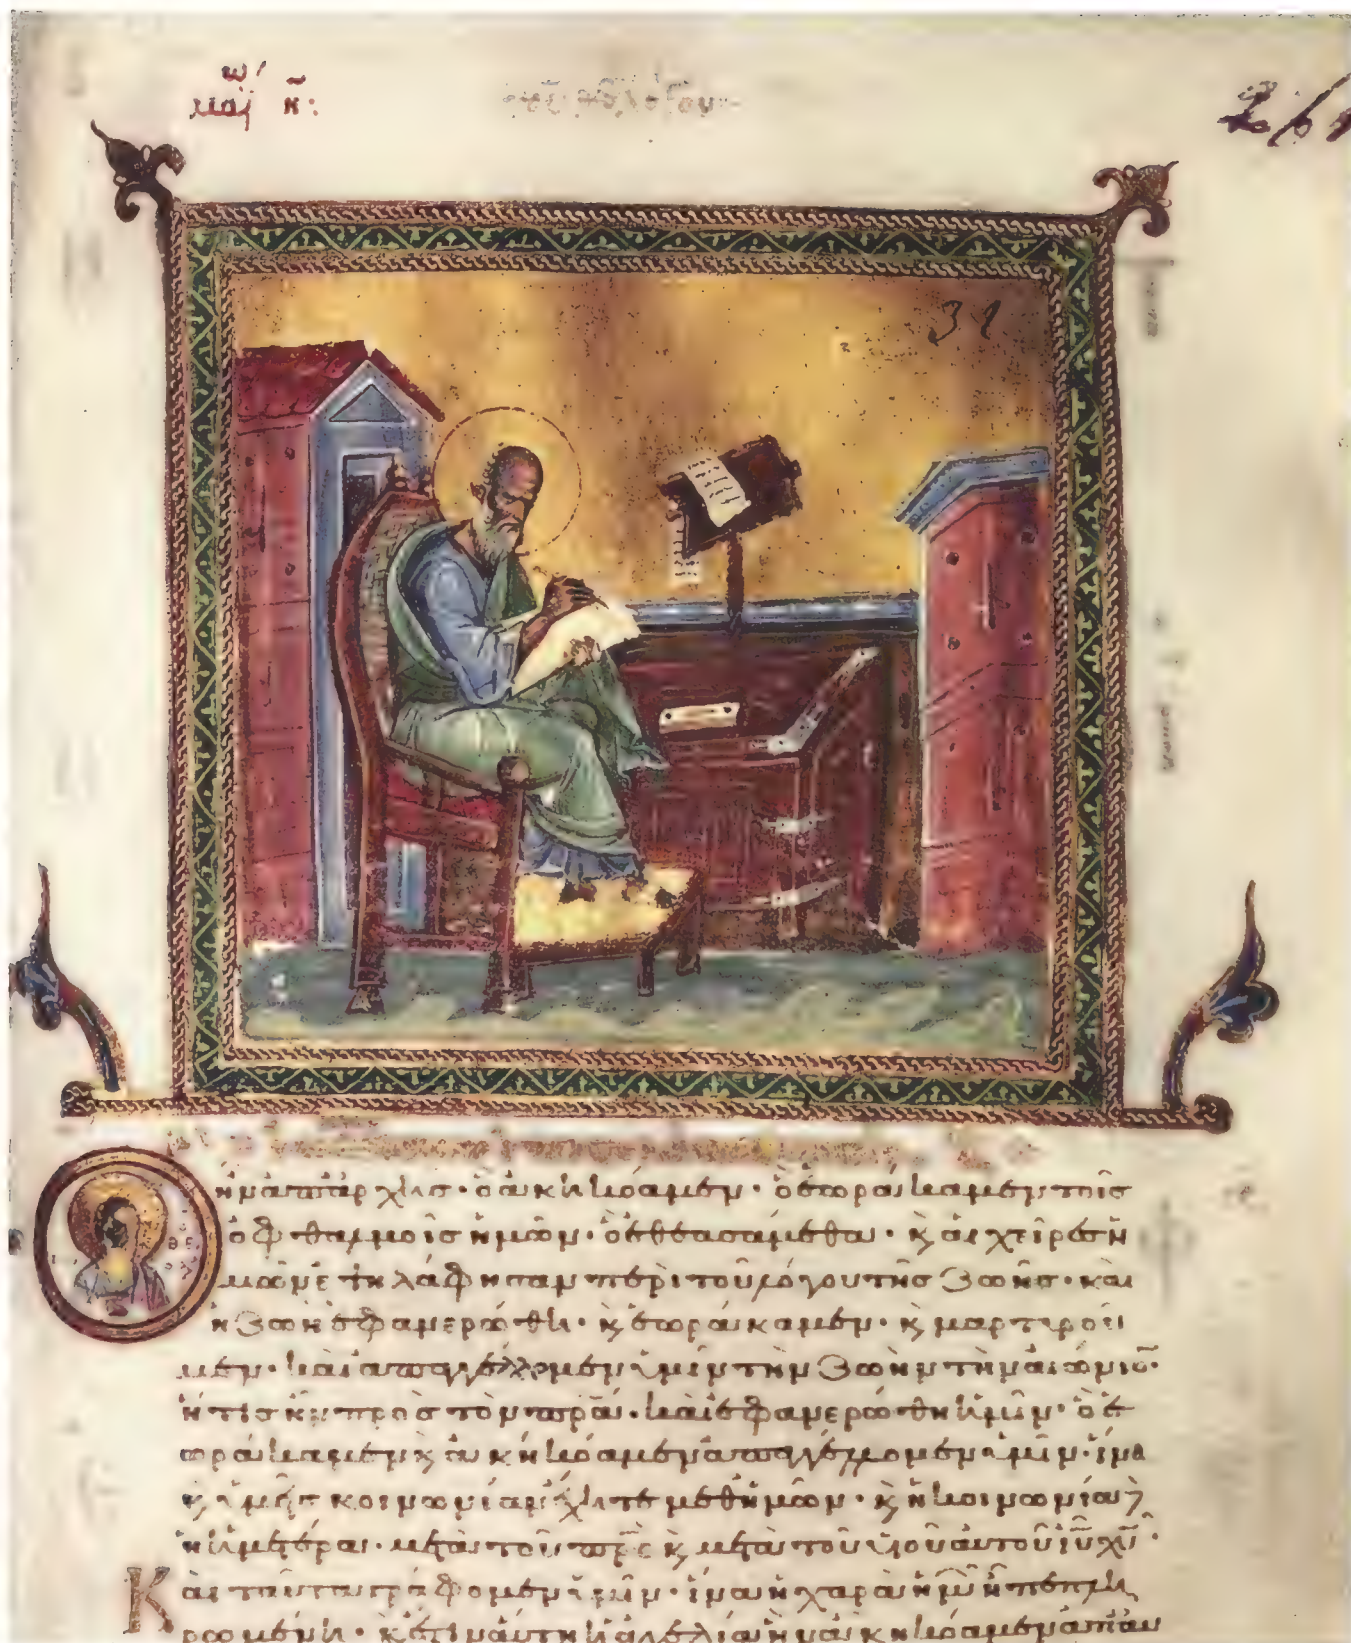 μαϊ κ̅:
31
ἦν ἀπ' ἀρχῆς· ὃ ἀκηκόαμεν· ὃ ἑωράκαμεν τοῖς
ὀφθαλμοῖς ἡμῶν· ὃ ἐθεασάμεθα· κ̀ αἱ χεῖρες ἡ
μῶν ἐψηλάφησαν περὶ τοῦ λόγου τῆς ζωῆς· καὶ
ἡ ζωὴ ἐφανερώθη· κ̀ ἑωράκαμεν· κ̀ μαρτυροῦ
μεν· καὶ ἀπαγγέλλομεν ὑμῖν τὴν ζωὴν τὴν αἰώνιο̅·
ἥτις ἦν πρὸς τὸν πρ̅α· καὶ ἐφανερώθη ἡμῖν· ὃ ἑ
ωράκαμεν κ̀ ἀκηκόαμεν ἀπαγγέλλομεν ὑμῖν· ἵνα
κ̀ ὑμεῖς κοινωνίαν ἔχητε μεθ' ἡμῶν· κ̀ ἡ κοινωνία
ἡ ἡμετέρα· μετὰ τοῦ πρ̅ς κ̀ μετὰ τοῦ υἱοῦ αὐτοῦ ι̅υ χ̅υ·
Καὶ ταῦτα γράφομεν ὑμῖν· ἵνα ἡ χαρὰ ἡμῶν ᾖ πεπλη
ρωμένη· κ̀ ἔστιν αὕτη ἡ ἀγγελία ἣν ἀκηκόαμεν ἀπ' αυ